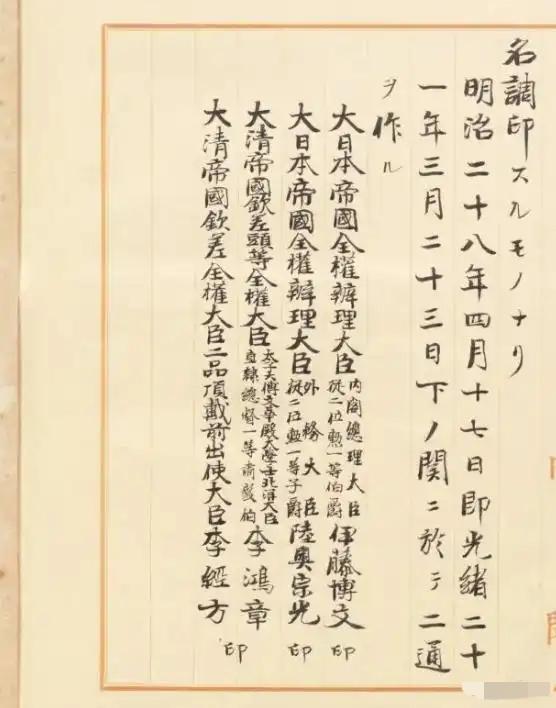 名調印スルモノナリ
明治二十八年四月十七日即光緒二十
一年三月二十三日下ノ関ニ於テ二通
ヲ作ル
大日本帝國全權辨理大臣內閣總理大臣從二位勲一等伯爵伊藤博文印
大日本帝國全權辨理大臣外務大臣從二位勲一等子爵陸奥宗光印
大清帝國欽差頭等全權大臣太子太傅文華殿大學士北洋大臣直隸總督一等肅毅伯李鴻章
大清帝國欽差全權大臣二品頂戴前出使大臣李經方印